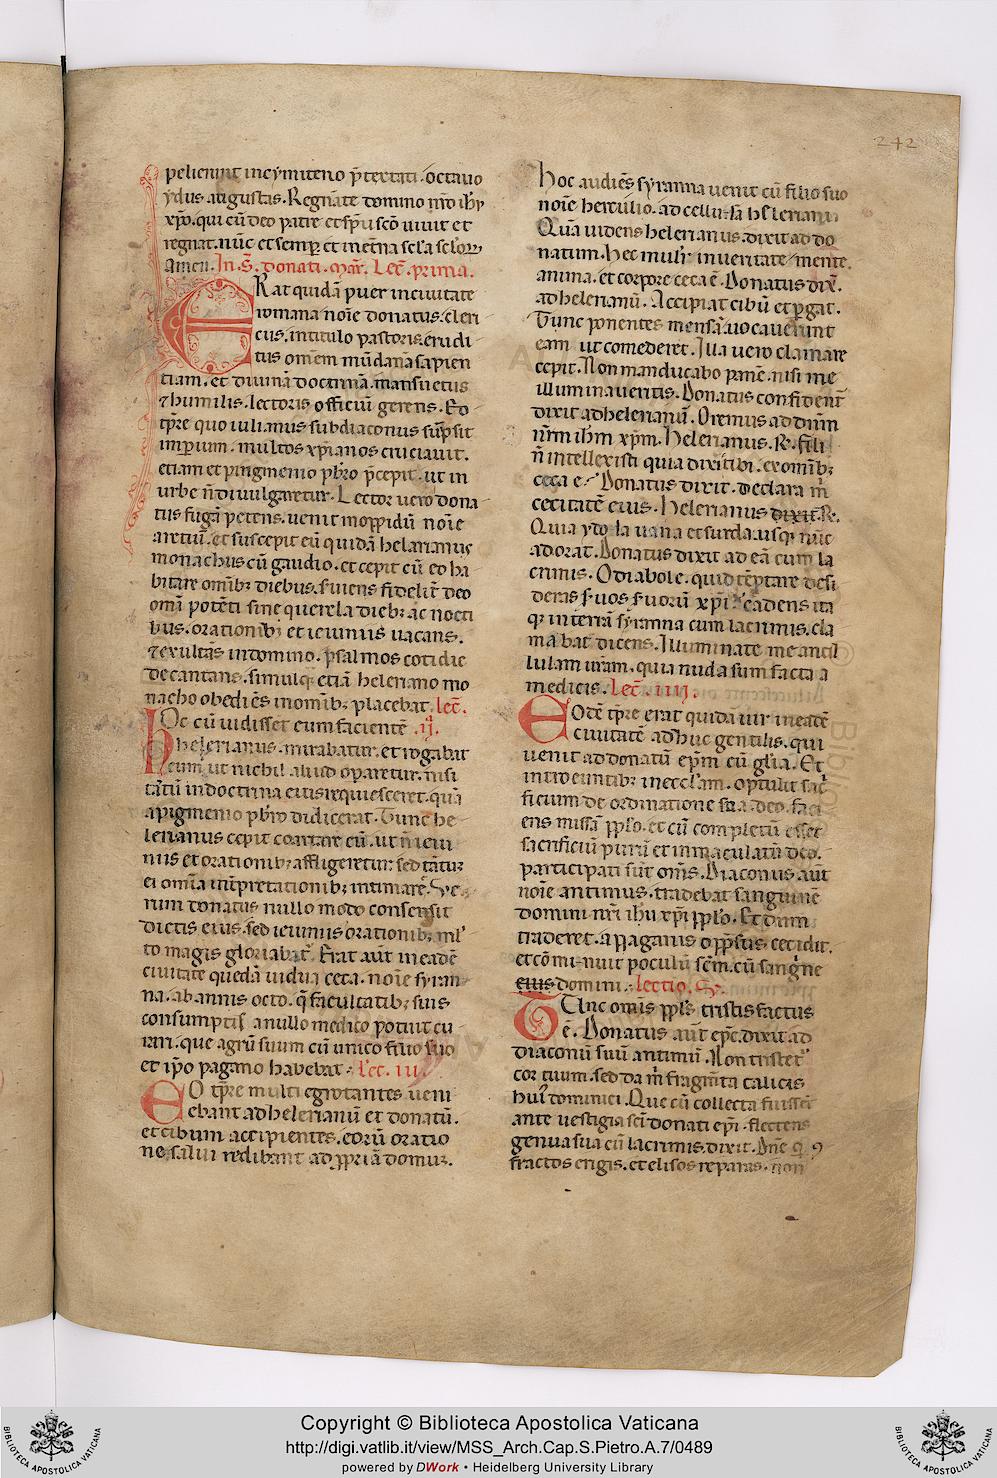 242
pelierunt in cymiterio p̄textati. octauo
ydus augustas. Regnāte domino nr̄o ih̄u
xp̄o. qui cū deo patre et sp̄u sc̄o uiuit et
regnat. nūc et semp̄ et in et̄na sc̄la sc̄lorꝝ
Amen. In. S. donati. mar̄. Lec̄. prima.
ERat quidā puer in ciuitate
romana noīe donatus. cleri
cus. in titulo pastoris. erudi
tus om̄em mūdanā sapien
tiam. et diuinā doctrinā. mansuetus
⁊ humilis. lectoris officiū gerens. Eo
tp̄re quo iulianus subdiaconus sūpsit
imp̄ium. multos xp̄ianos cruciauit.
etiam et pingmenio pb̄ro p̄cepit. ut in
urbe n̄ diuulgaretur. Lector uero dona
tus fugā petens. uenit in oppidū noīe
aretiū. et suscepit eū quidā helarianus
monachus cū gaudio. et cepit cū eo ha
bitare om̄ibꝫ diebus. s̄uiens fidelit̄ deo
om̄i potēti sine querela dieb; ac nocti
bus. orationibꝫ et ieiuniis uacans.
⁊ exultās in domino. psalmos cotidie
decantans. simulqꝫ etiā heleriano mo
nacho obediēs in om̄ibꝫ placebat. lec̄.
HOc cū uidisset eum facientē .ij.
helerianus. mirabatur. et rogabat
eum ut nichil aliud op̄aretur. nisi
tātū in doctrina eius requiesceret. quā
a pigmenio pb̄ro didicerat. Tunc he
lerianus cepit coartare eū. ut n̄ ieiu
niis et orationibꝫ affligeretur. sed tātur
ei om̄ia int̄pretationibꝫ intimaret̄. Ve
rum donatus nullo modo consensit
dictis eius. sed ieiuniis orationibꝫ ml̄
to magis gloriabat̄. Erat aūt in eadē
ciuitate quedā uidua ceca. noīe syran
na. ab annis octo. q̄ facultatibꝫ suis
consumptis a nullo medico potuit cu
rari. que agrū suum cū unico filio suo
et ip̄o pagano habebat. Lec̄. iii.
EO tp̄re multi egrotantes ueni
ebant ad helerianū et donatū.
et cibum accipientes. eorū oratio
ne salui redibant ad ꝓpriā domū.
Hoc audiēs syranna uenit cū filio suo
noīe herculio. ad cellulā heleriani
Quā uidens helerianus. dixit ad do
natum. Hec mulier in ueritate mente.
anima. et corpore ceca ē. Donatus dix̄.
ad helerianū. Accipiat cibū et ꝑgat.
Tunc ponentes mensā. uocauerunt
eam ut comederet. Illa uero clamare
cepit. Non manducabo pane. nisi me
illuminaueritis. Donatus confident̄
dixit ad helerianū. Oremus ad dn̄m
nr̄m ih̄m xp̄m. Helerianus. R̄. fili
n̄ intellexisti quia dixi tibi. ex om̄ibꝫ
ceca ē. Donatus dixit. declara m̄
cecitatē eius. Helerianus dixit. R̄.
Quia ydola uana et surda. usqꝫ nūc
adorat. Donatus dixit ad eā cum la
crimis. O diabole. quid tēptare desi
deras s̄uos s̄uorū xp̄i. Cadens ita
qꝫ in terrā syranna cum lacrimis. cla
mabat dicens. Illuminate me ancil
lulam ur̄am. quia nuda sum facta a
medicis. Lec̄. iiij.
EOdē tp̄re erat quidā uir in eadē
ciuitate adhuc gentilis. qui
uenit ad donatū ep̄m cū gl̄ia. Et
introeuntibꝫ in eccl̄am. optulit sac̄
ficium de ordinatione sua deo. faci
ens missā ꝓ pp̄lo. et cū completū esset
sacrificiū purū et inmaculatū deo.
participati sūt om̄s. Diaconus aūt
noīe antimus. tradebat sanguinē
domini nr̄i ih̄u xp̄i pp̄lo. Et dum
traderet. a paganis opp̄ssus cecidit.
et cōminuit poculū sc̄m. cū sangⁱne
eius domini. lectio. V.
TUnc om̄is pp̄ls tristis factus
ē. Donatus aūt ep̄c. dixit ad
diaconū suū antimū. Non tristet̄
cor tuum. sed da m̄ fragm̄ta calicis
huī dominici. Que cū collecta fuissent
ante uestigia sc̄i donati ep̄i. flectens
genua sua cū lacrimis. dixit. Dn̄e q̄ ꝯ
fractos erigis. et elisos reparas. non
Copyright © Biblioteca Apostolica Vaticana
http://digi.vatlib.it/view/MSS_Arch.Cap.S.Pietro.A.7/0489
powered by DWork • Heidelberg University Library
BIBLIOTECA APOSTOLICA VATICANA
BIBLIOTECA APOSTOLICA VATICANA